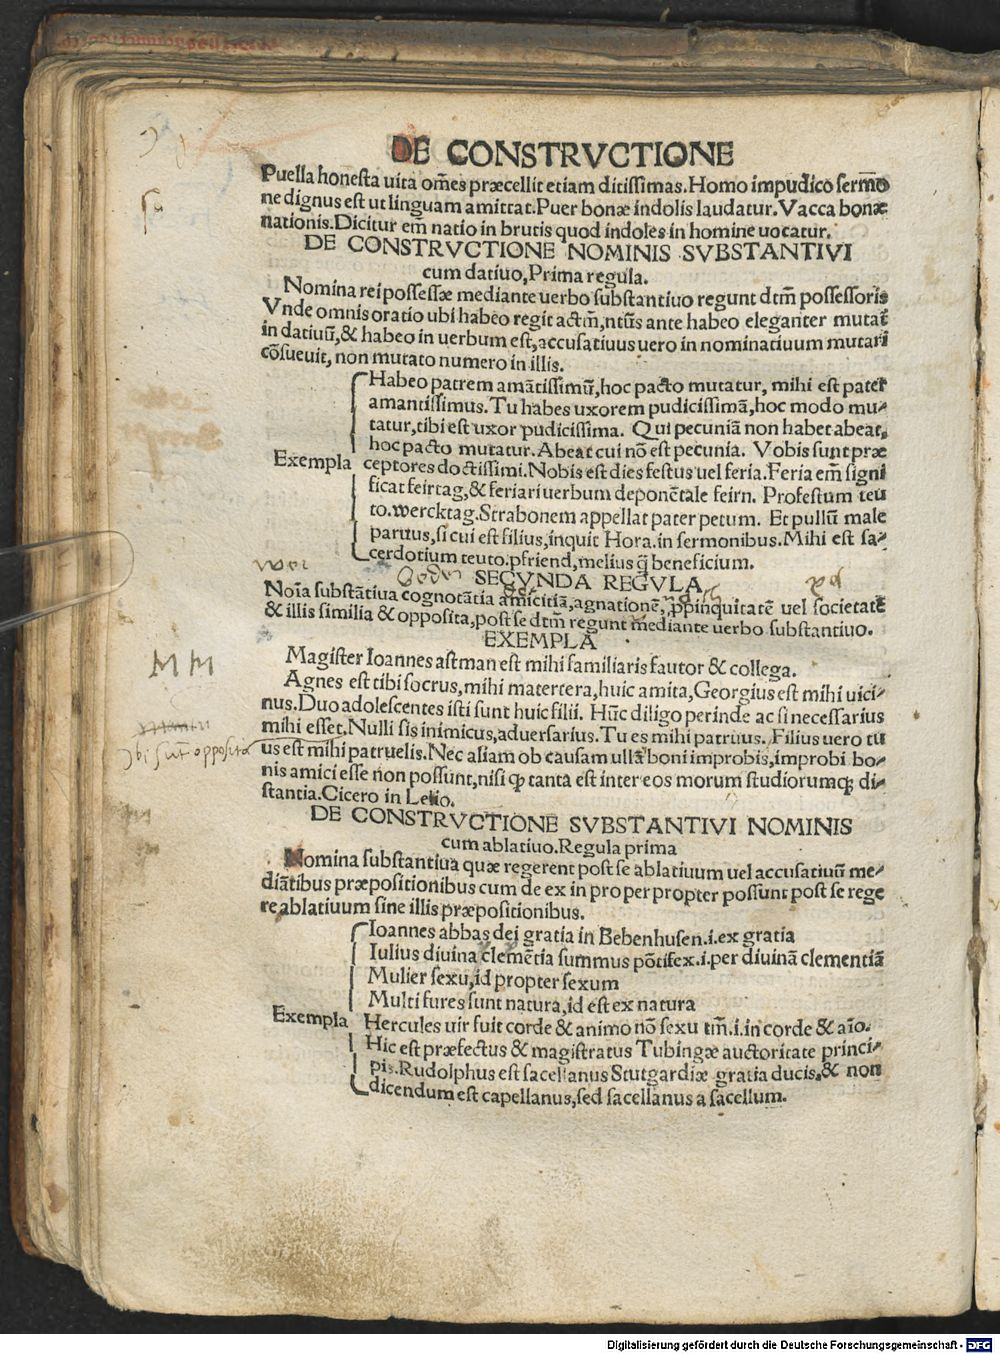 DE CONSTRVCTIONE
Puella honesta uita om̃es præcellit etiam ditissimas. Homo impudico serm̃o
ne dignus est ut linguam amittat. Puer bonæ indolis laudatur. Vacca bonæ
nationis. Dicitur em̃ natio in brutis quod indoles in homine uocatur.
DE CONSTRVCTIONE NOMINIS SVBSTANTIVI
cum datiuo, Prima regula.
Nomina rei possessæ mediante uerbo substantiuo regunt dtm̃ possessoris
Vnde omnis oratio ubi habeo regit actm̃, ntũs ante habeo eleganter mutat̃
in datiuũ, & habeo in uerbum est, accusatiuus uero in nominatiuum mutari
cõsueuit, non mutato numero in illis.
Habeo patrem amãtissimũ, hoc pacto mutatur, mihi est pater
amantissimus. Tu habes uxorem pudicissimã, hoc modo mu-
tatur, tibi est uxor pudicissima. Qui pecuniã non habet abeat,
hoc pacto mutatur. Abeat cui nõ est pecunia. Vobis sunt præ
Exempla ceptores doctissimi. Nobis est dies festus uel feria. Feria em̃ signi
ficat feirtag, & feriari uerbum deponẽtale feirn. Profestum teu
to. wercktag. Strabonem appellat pater petum. Et pullũ male
paruus, si cui est filius, inquit Hora. in sermonibus. Mihi est sa-
cerdotium teuto. pfriend, melius q̃ beneficium.
wer
SECVNDA REGVLA
Noĩa substãtiua cognotãtia amicitiã, agnationẽ, p̱pinquitatẽ uel societatẽ
& illis similia & opposita, post se dtm̃ regunt mediante uerbo substantiuo.
EXEMPLA
Magister Ioannes astman est mihi familiaris fautor & collega.
M M
Agnes est tibi socrus, mihi matertera, huic amita, Georgius est mihi uici-
nus. Duo adolescentes isti sunt huic filii. Hũc diligo perinde ac si necessarius
mihi esset. Nulli sis inimicus, aduersarius. Tu es mihi patruus. Filius uero tu
us est mihi patruelis. Nec aliam ob causam ullã boni improbis, improbi bo-
nis amici esse non possunt, nisi ꝙ tanta est inter eos morum studiorumqꝫ di-
stantia. Cicero in Lelio.
DE CONSTRVCTIONE SVBSTANTIVI NOMINIS
cum ablatiuo. Regula prima
Nomina substantiua quæ regerent post se ablatiuum uel accusatiuũ me-
diãtibus præpositionibus cum de ex in pro per propter possunt post se rege
re ablatiuum sine illis præpositionibus.
Ioannes abbas dei gratia in Bebenhusen .i. ex gratia
Iulius diuina clemẽtia summus põtifex .i. per diuinã clementiã
Mulier sexu, id propter sexum
Multi fures sunt natura, id est ex natura
Exempla Hercules uir fuit corde & animo nõ sexu tm̃ .i. in corde & aĩo.
Hic est præfectus & magistratus Tubingæ auctoritate princi-
pis. Rudolphus est sacellanus Stutgardiæ gratia ducis, & non
dicendum est capellanus, sed sacellanus a sacellum.
Digitalisierung gefördert durch die Deutsche Forschungsgemeinschaft - DFG